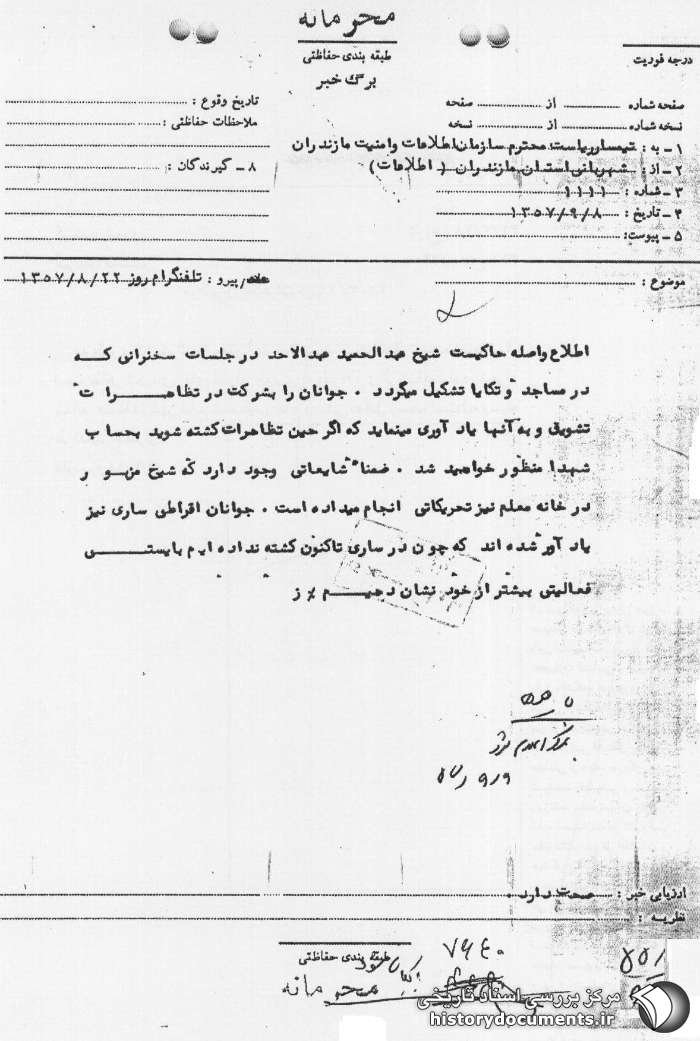 محرمانه
طبقه بندی حفاظتی
برگ خبر
درجه فوریت
صفحه شماره از صفحه
نسخه شماره از نسخه
۱ ـ به : تیمسار ریاست محترم سازمان اطلاعات وامنیت مازندران
۲ ـ از : شهربانی استان مازندران ( اطلاعات )
۳ ـ شماره : ۱۱۱۱
۴ ـ تاریخ : ۱۳۵۷/۹/۸
۵ ـ پیوست:
تاریخ وقوع :
ملاحظات حفاظتی :
۸ ـ گیرندگان :
موضوع :
پیرو : تلفنگرام روز ۱۳۵۷/۸/۲۲
اطلاع واصله حاکیست شیخ عبدالحمید عبدالاحد در جلسات سخنرانی که
در مساجد و تکایا تشکیل میگردد . جوانان را بشرکت در تظاهرات
تشویق و به آنها یاد آوری مینماید که اگر حین تظاهرات کشته شوید بحساب
شهدا منظور خواهید شد . ضمنا شایعاتی وجود دارد که شیخ مزبور
در خانه معلم نیز تحریکاتی انجام میداده است . جوانان افراطی ساری نیز
یاد آور شده اند که چون در ساری تاکنون کشته نداده ایم بایستی
فعالیتی بیشتر از خود نشان دهیم ٪ ز
ارزیابی خبر : صحت دارد .
نظریه :
طبقه بندی حفاظتی
محرمانه
۷۶۴۰
مرکز بررسی اسناد تاریخی
historydocuments.ir